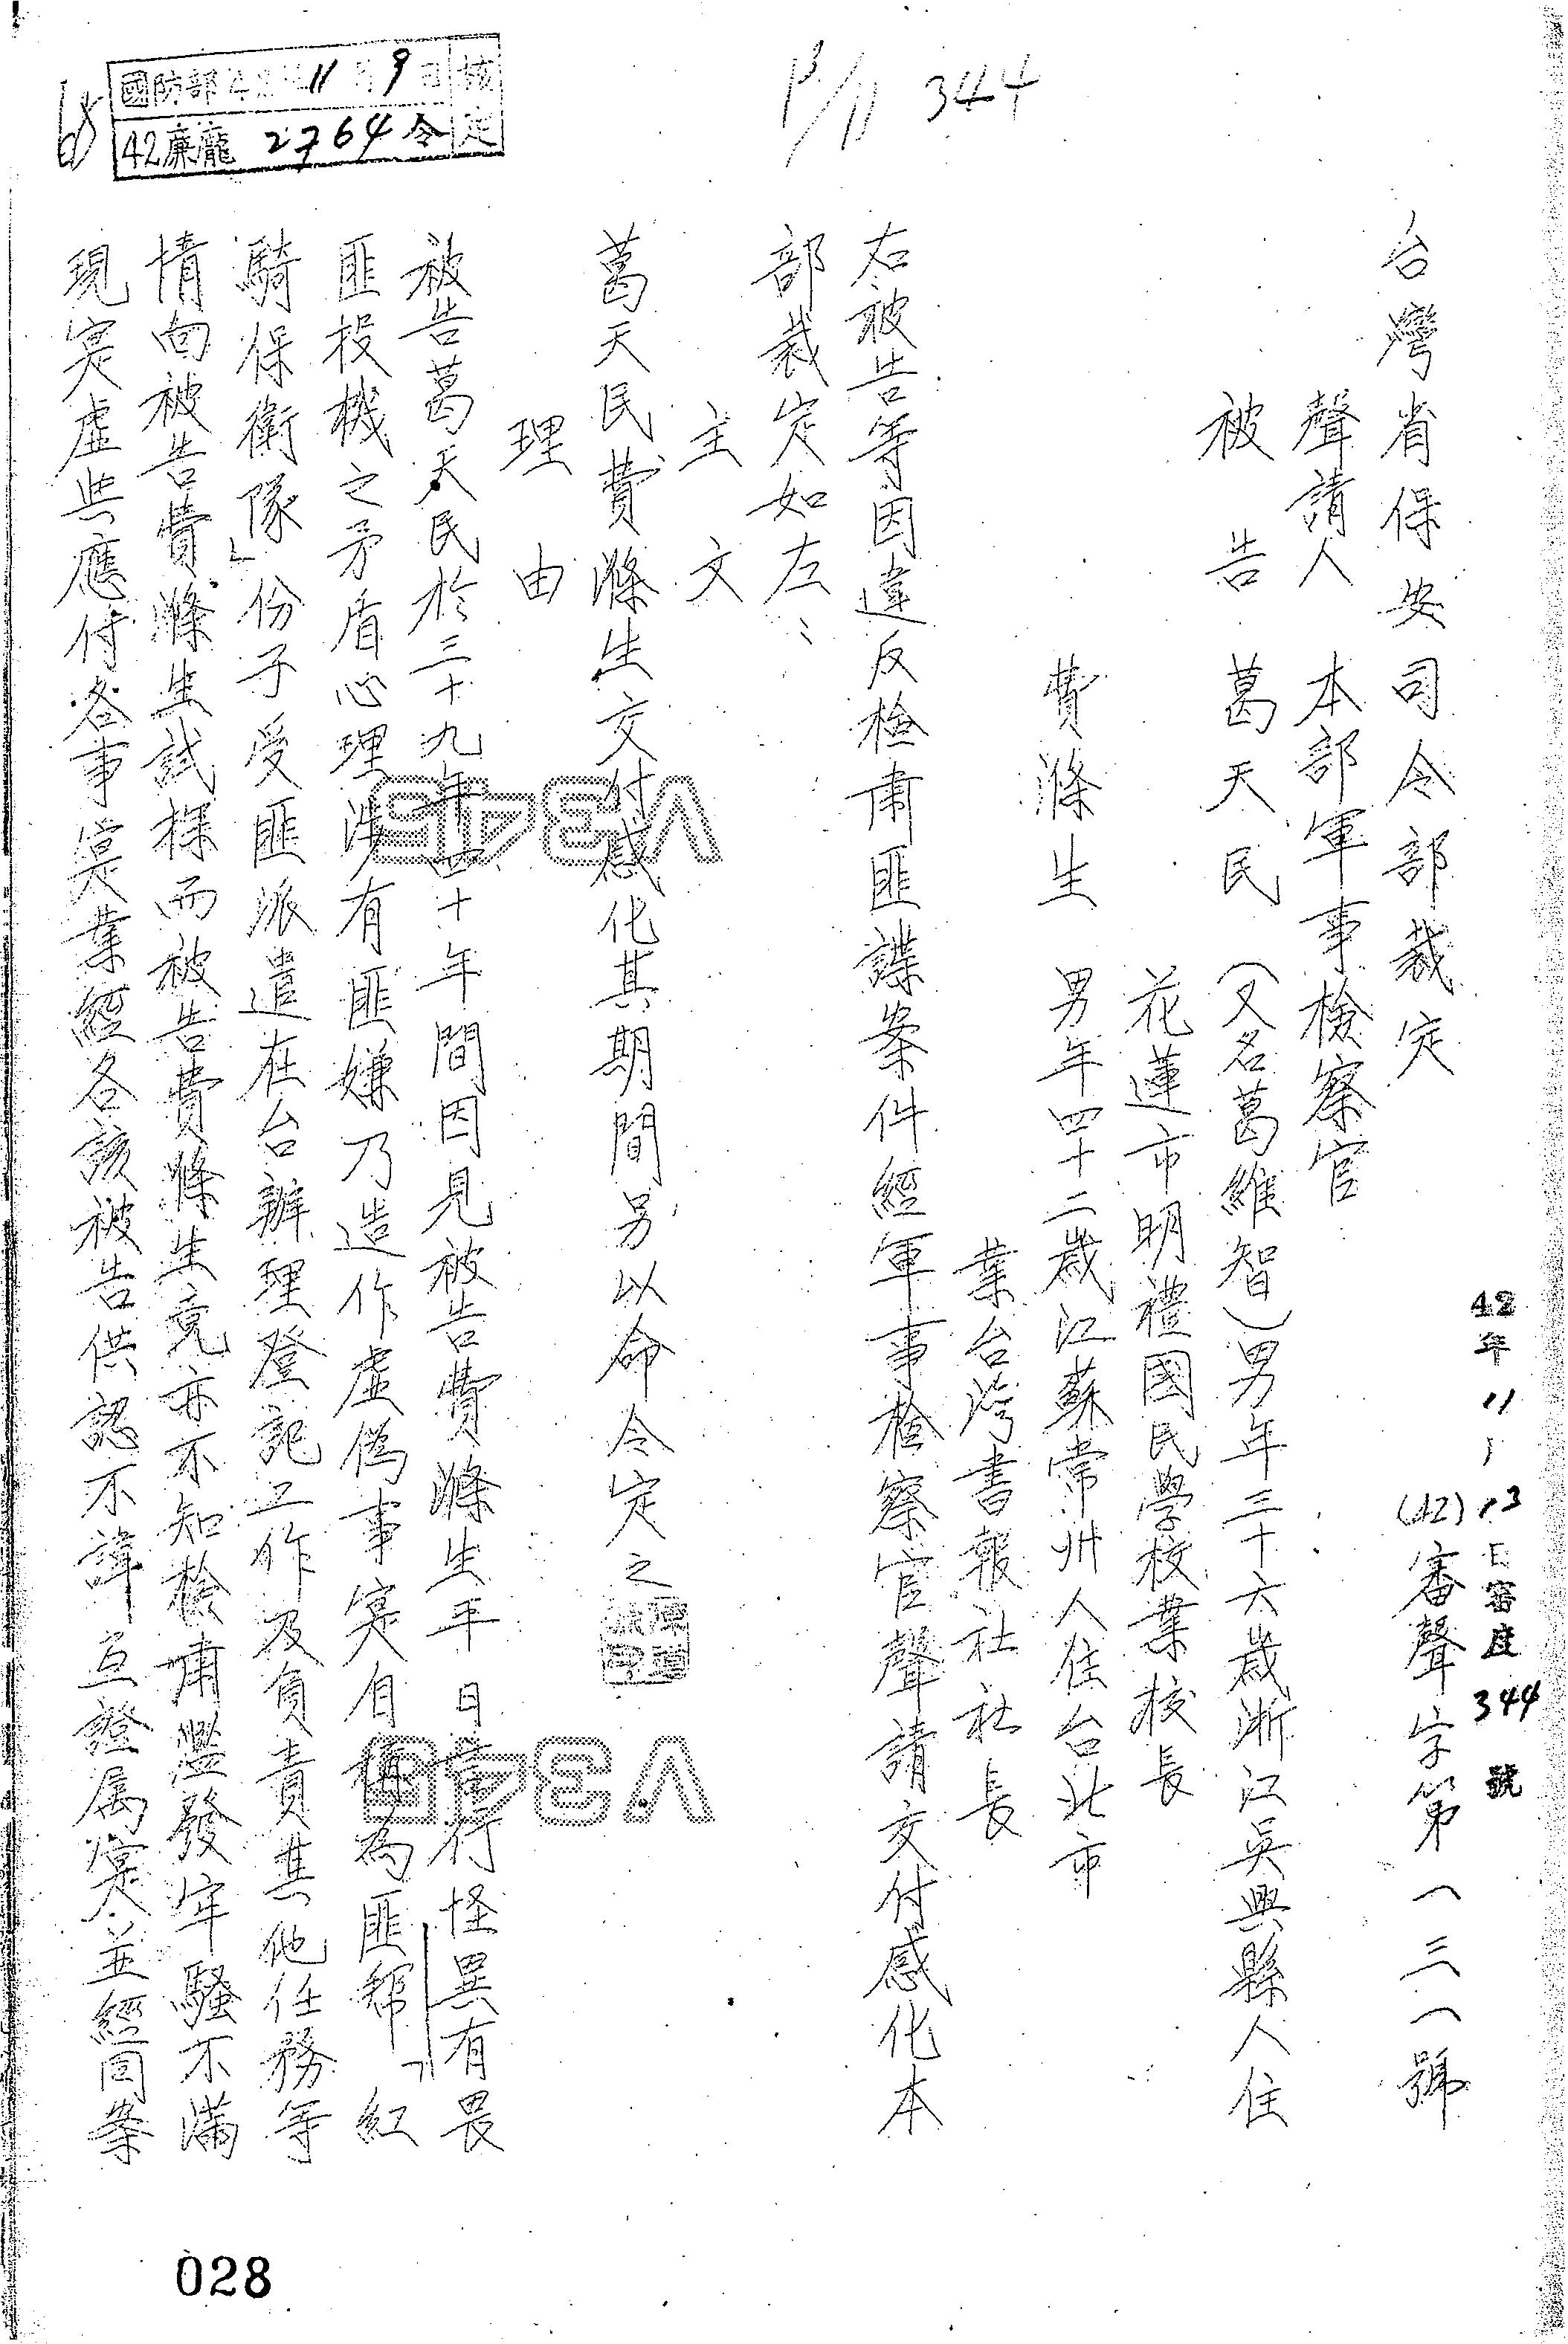 國防部42年11月9日核定
42廉龐2764令
13/11 344
42年11月13日審度344號
台灣省保安司令部裁定
(42)審聲字第一三一號
聲請人 本部軍事檢察官
被告 葛天民(又名葛維智)男年三十六歲浙江吳興縣人住
花蓮市明禮國民學校業校長
費滌生 男年四十二歲江蘇常州人住台北市
業台灣書報社社長
右被告等因違反檢肅匪諜案件經軍事檢察官聲請交付感化本
部裁定如左:
主文
葛天民費滌生交付感化其期間另以命令定之
理由
被告葛天民於三十九年四十年間因見被告費滌生平日言行怪異有畏
匪投機之矛盾心理涉有匪嫌乃造作虛偽事实自稱為匪幫「紅
騎保衛隊」份子受匪派遣在台辦理登記工作及負責其他任務等
情向被告費滌生試探而被告費滌生竟亦不知檢肅濫發牢騷不滿
現实虛與應付各事实業經各該被告供認不諱互證属实並經同案
V345
V345
028